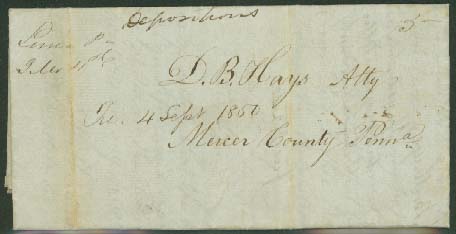 Depositions
5
D. B. Hays Atty
4 Sept 1850
Mercer County Penna